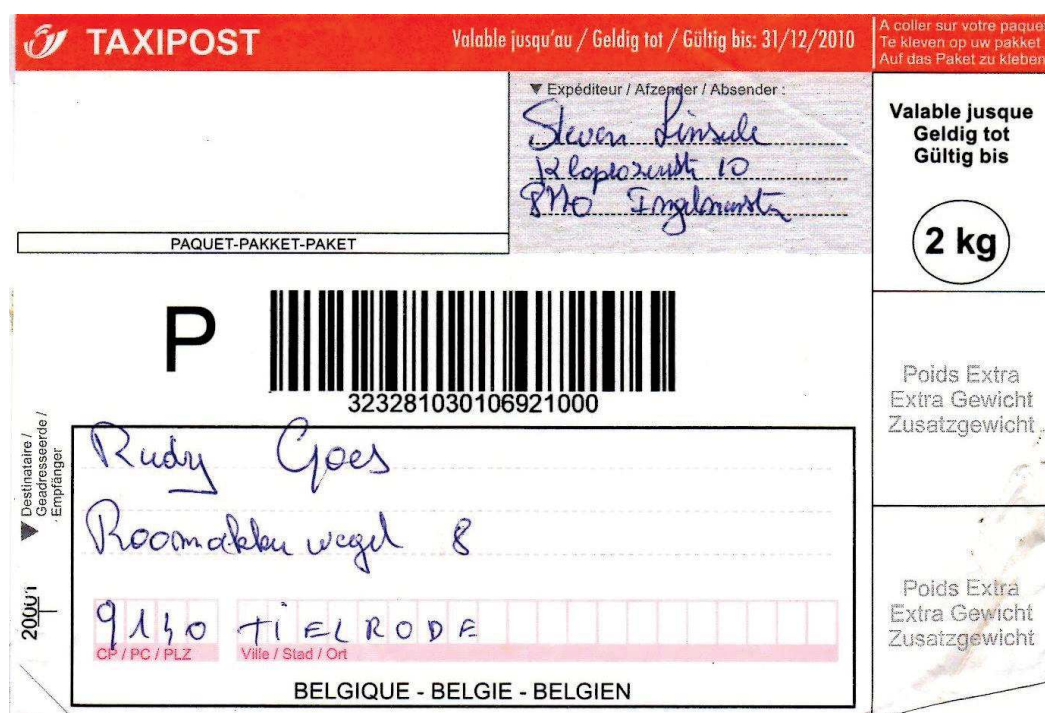 TAXIPOST
Valable jusqu'au / Geldig tot / Gültig bis: 31/12/2010
A coller sur votre paquet
Te kleven op uw pakket
Auf das Paket zu kleben
▼ Expéditeur / Afzender / Absender :
Steven
10
8770 Ingelmunster
Valable jusque
Geldig tot
Gültig bis
2 kg
PAQUET-PAKKET-PAKET
P
323281030106921000
Poids Extra
Extra Gewicht
Zusatzgewicht
▼ Destinataire /
Geadresseerde /
Empfänger
Rudy Goes
Roomakkerwegel 8
9140 TIELRODE
CP / PC / PLZ
Ville / Stad / Ort
Poids Extra
Extra Gewicht
Zusatzgewicht
BELGIQUE - BELGIE - BELGIEN